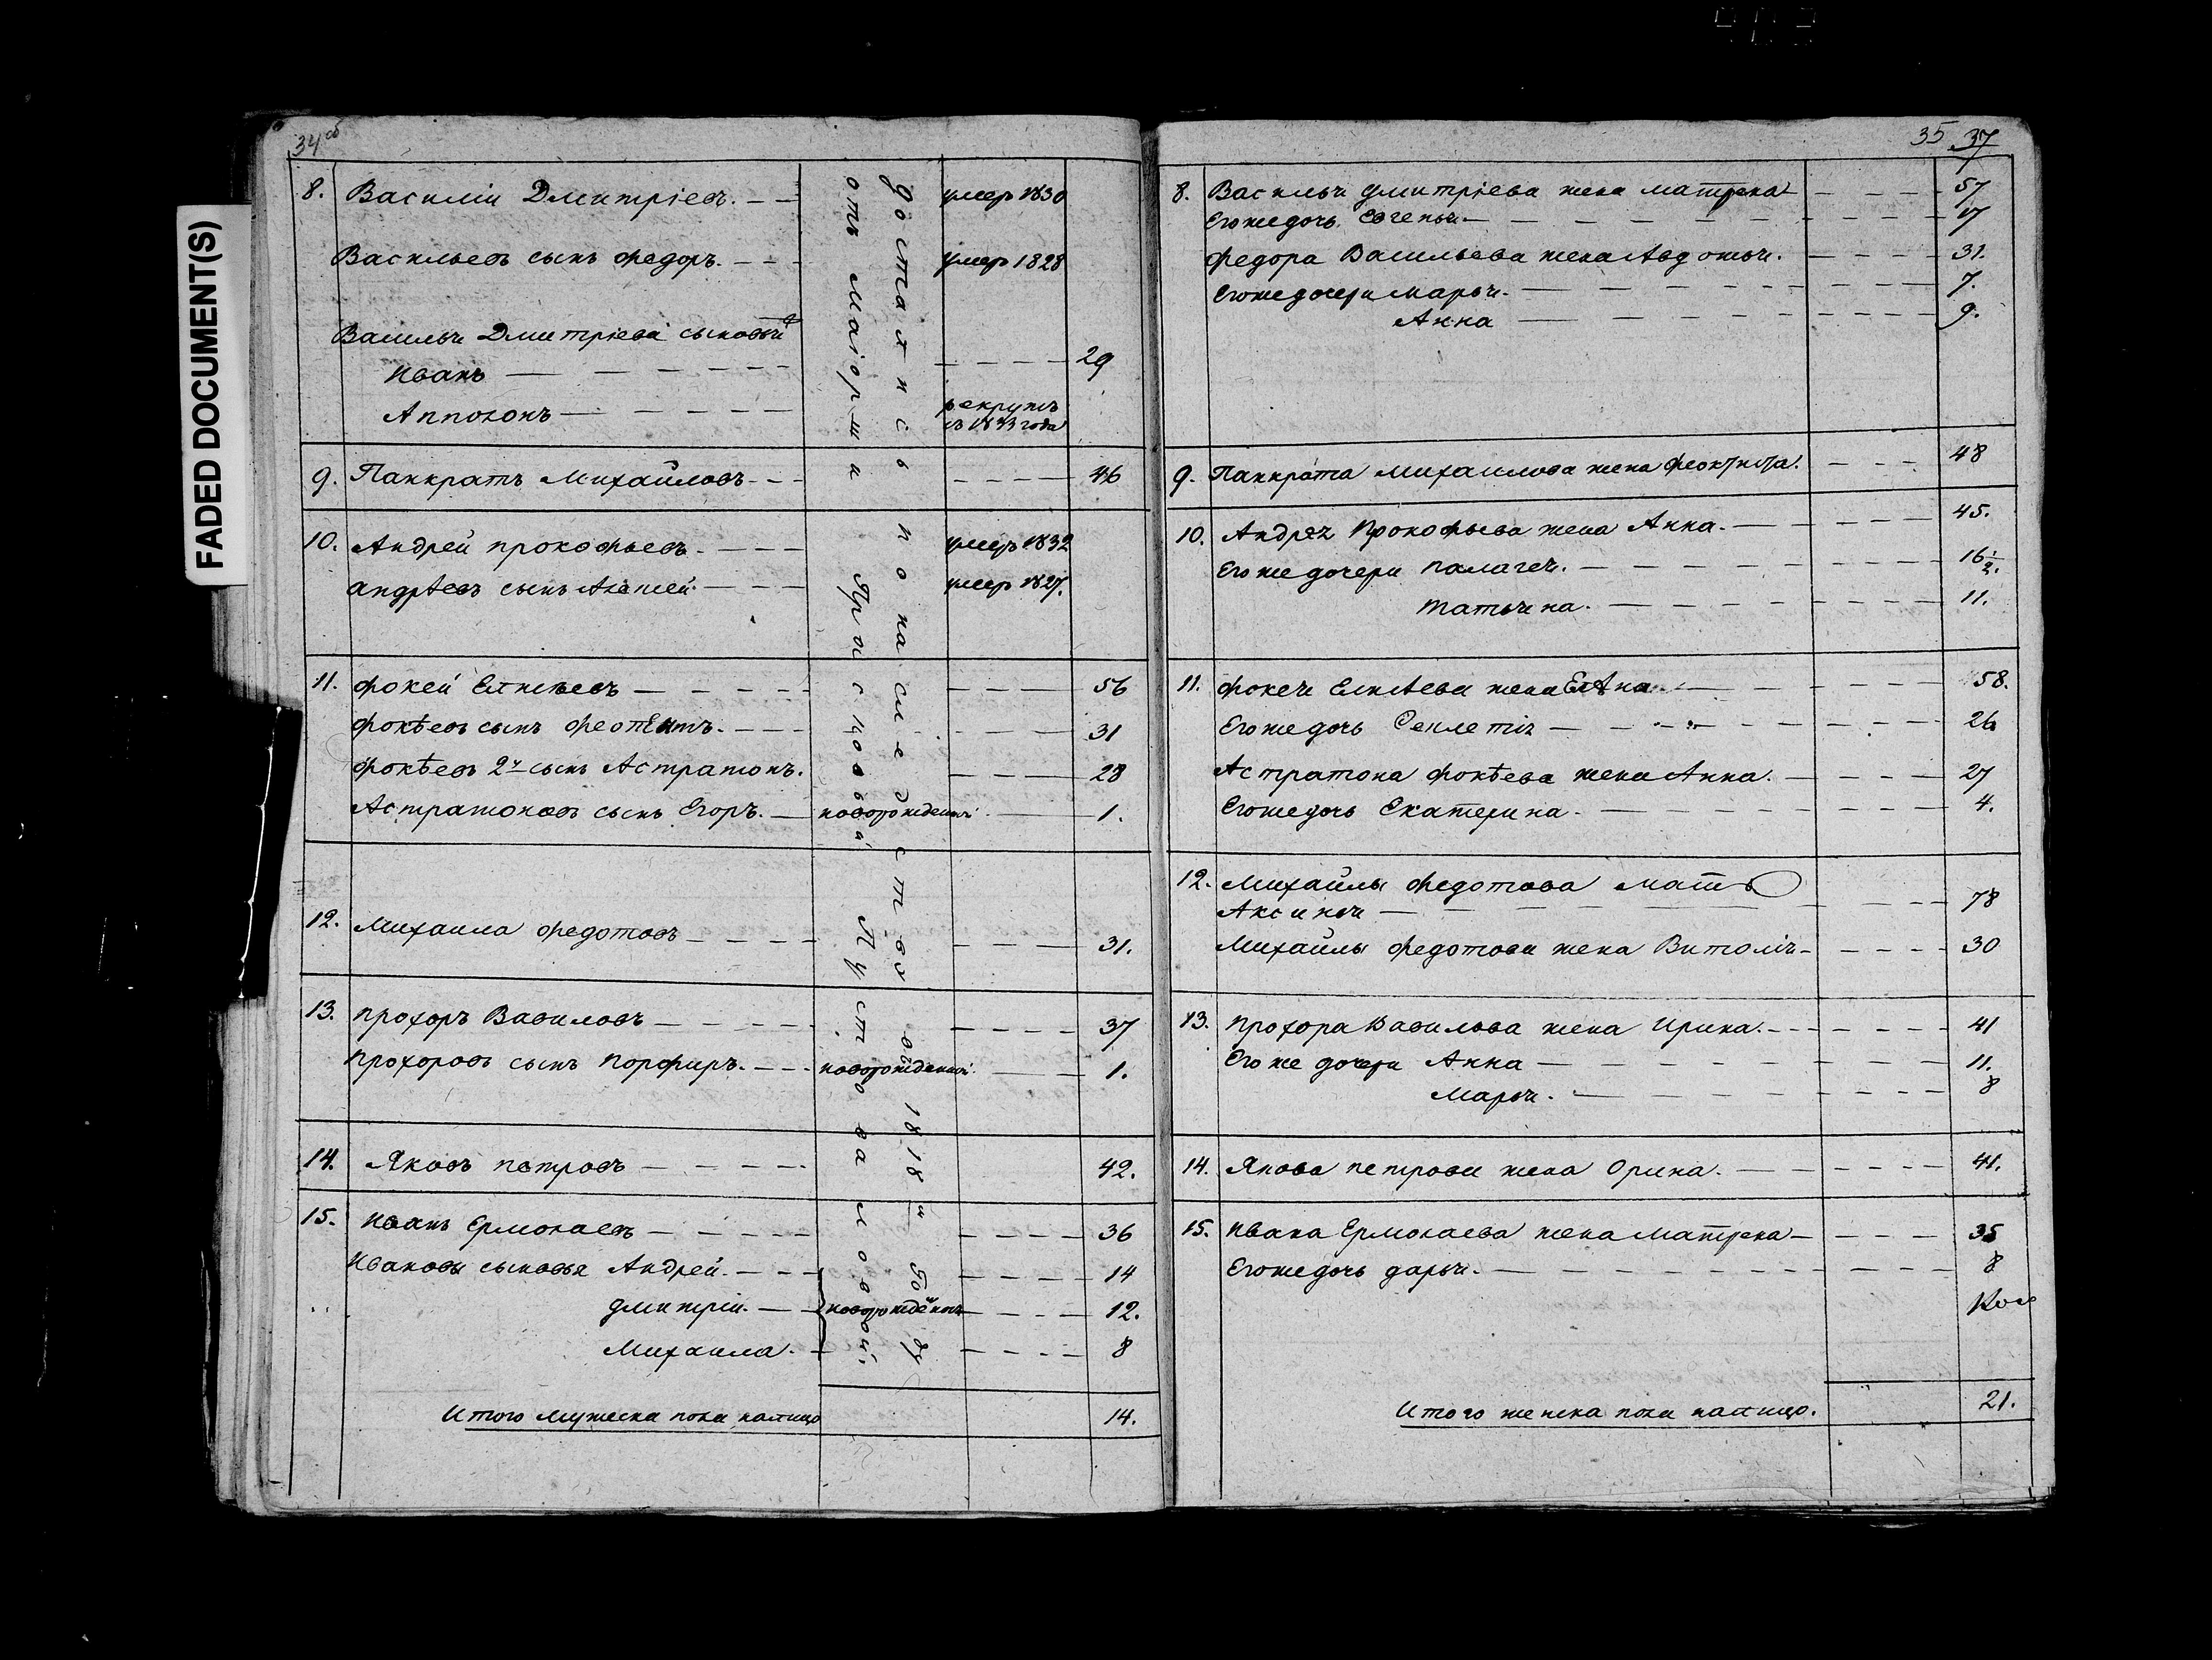 FADED DOCUMENT(S)
34об
8. Василiи Дмитрiевъ. умеръ 1830
Васильевъ сынъ Федоръ. умеръ 1828
Василья Дмитрiева сыновья
Иванъ 29
Апполонъ рекрутъ
съ 1833 года
9. Панкратъ Михайловъ 46
10. Андрей прокофьевъ. умеръ 1832
андрѣевъ сынъ Алексей. умеръ 1827.
11. фокей Елисѣевъ 56
фокѣевъ сынъ 31
фокѣевъ 2й сынъ Астратонъ. 28
Астратоновъ сынъ Егоръ. новорожденный 1.
12. Михаила федотовъ 31.
13. прохоръ Вавиловъ 37
прохоровъ сынъ Порфиръ. новорожденный 1.
14. Яковъ петровъ 42.
15. Иванъ Ермолаевъ 36
Ивановы сыновья Андрей. 14
дмитрiи. новорождённые 12.
Михаила. 8
Итого мужеска пола налицо 14.
достались по наследству въ 1818м году
отъ маiорши Прасковьи Пустоваловой.
35 37
8. Василья дмитрiева жена матрена 57
Егоже дочь Евгенья 17
федора Васильева жена Авдотья. 31.
Егоже дочери марья. 7.
Анна 9.
9. Панкрата михаилова жена феоктиста. 48
10. Андрея Прокофьева жена Анна. 45.
Его же дочери палагея. 16 1/2.
татьяна. 11.
11. фокея Елисѣева жена Елѣна 58.
Егоже дочь Секлетiя 26
Астратона фокѣева жена Анна. 27
Егоже дочь Екатерина. 4.
12. Михайлы федотова мать
Аксинья 78
Михайлы федотова жена Витолiя 30
13. прохора Вавилова жена Ирина. 41
Его же дочери Анна 11.
марья. 8
14. Якова петрова жена Орина. 41.
15. Ивана Ермолаева жена матрена 35
Егоже дочь дарья. 8
Итого женска пола налицо. 21.